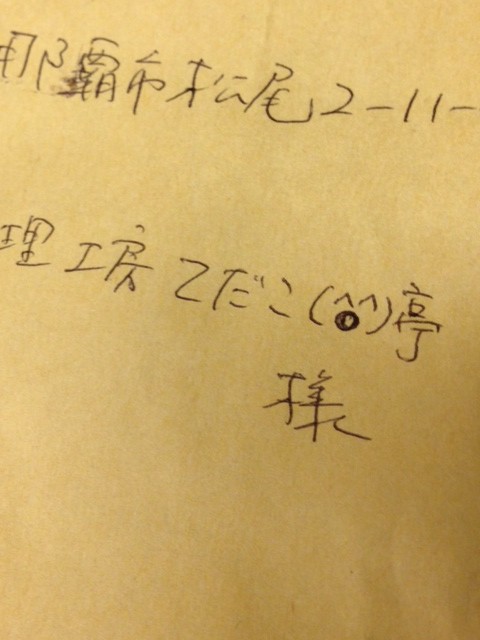 那覇市松尾2-11-
理工房てだこ(^^)亭
様